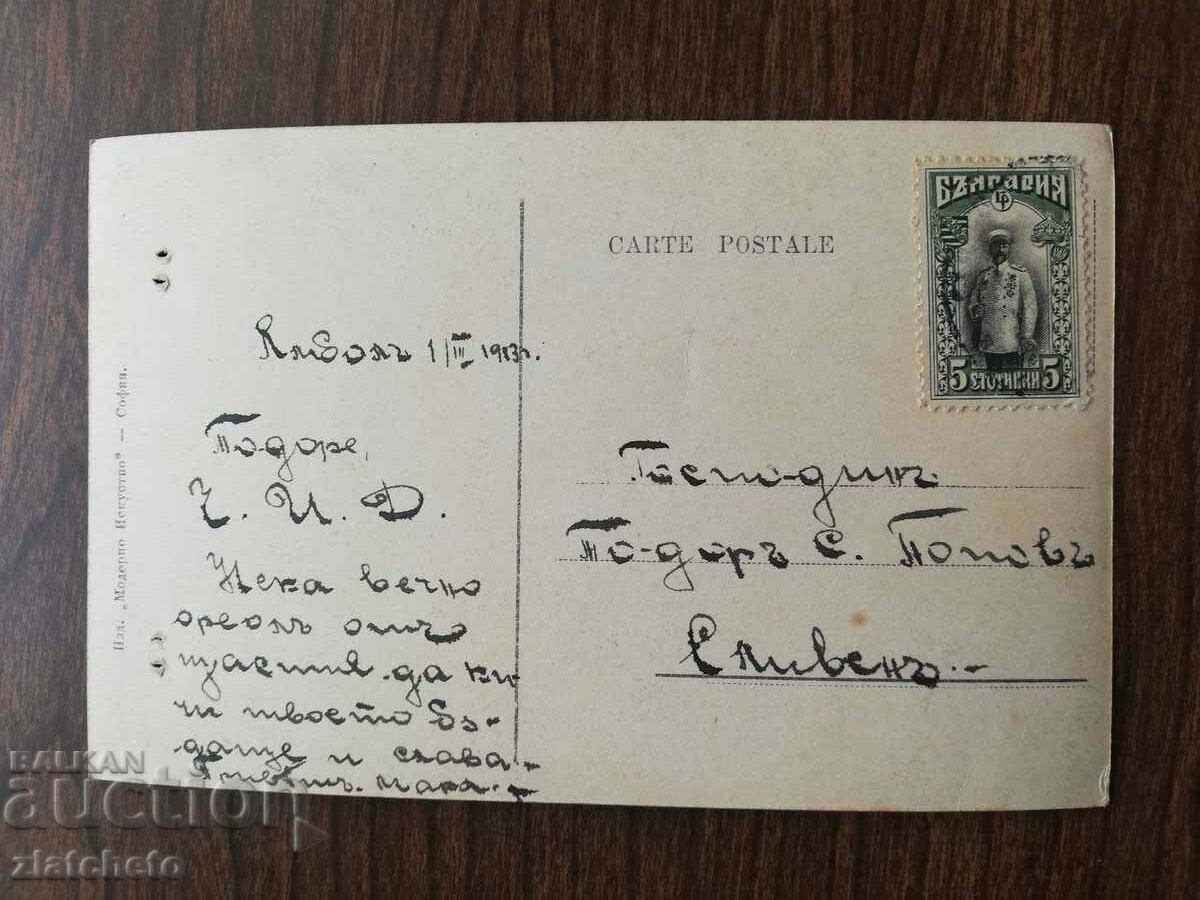 CARTE POSTALE
БЪЛГАРИЯ
5 СТОТИНКИ 5
Ямболъ 1/III 1913г.
Тодоре,
Ч. И. Д.
Нека вечно
ореолъ отъ
щастие да ки-
чи твоето бъ-
даще и слава
Господинъ
Тодоръ С. Поповъ
Сливенъ.-
Изд. „Модерно Искуство" — София.
BALKAN
auction
zlatcheto